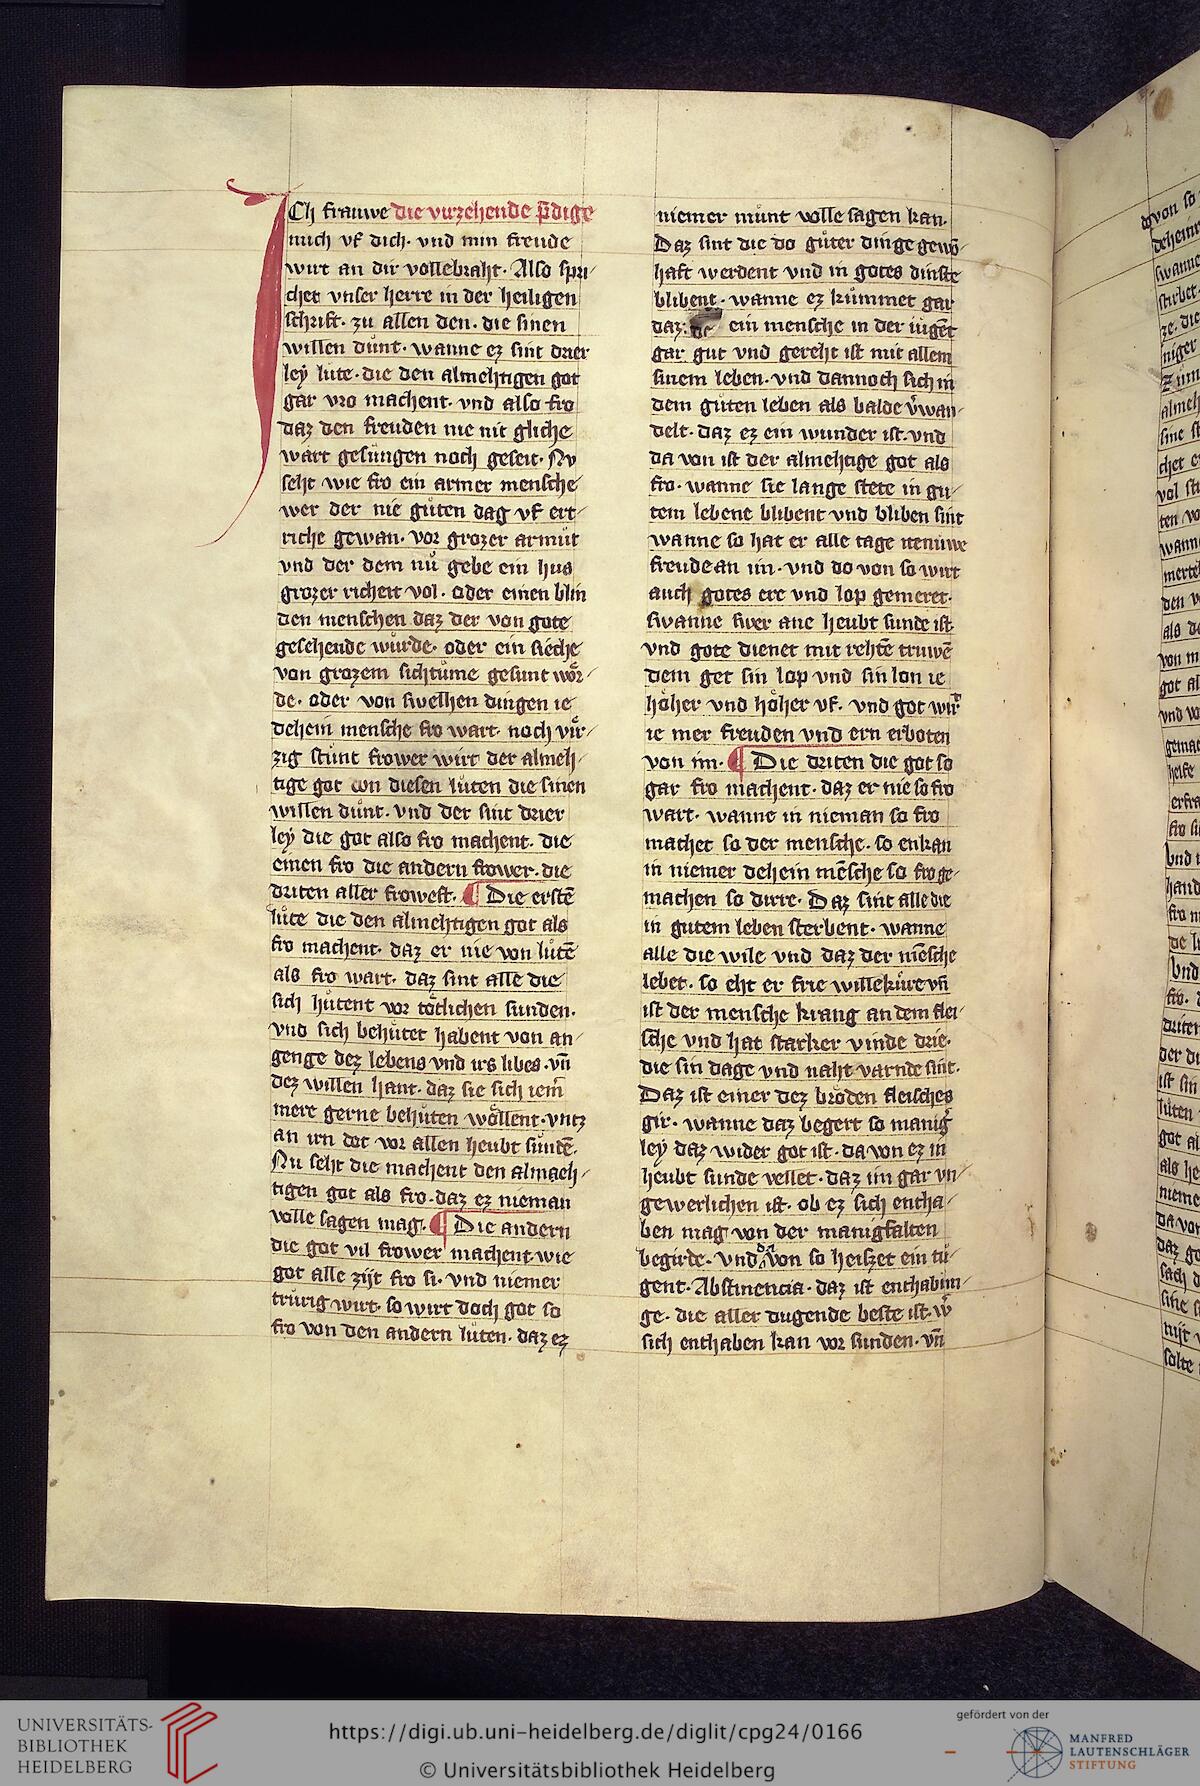 ICh frauwe die virzehende p̄dige
mich vf dich· vnd min freude
wirt an dir vollebraht· Also spri-
chet vnser herre in der heiligen
schrift· zu allen den· die sinen
willen duͤnt· wanne ez sint drier
ley luͤte· die den almehtigen got
gar vro machent· vnd also fro
daz den freuden nie nit gliche
wart gesuͤngen noch geseit· Nv
seht wie fro ein armer mensche
wer der nie guͤten dag vf ert-
riche gewan· vor grozer armuͤt
vnd der dem nuͤ gebe ein hus
grozer richeit vol· oder einen blin
den menschen daz der von gote
gesehende wuͤrde· oder ein sieche
von grozem sichtuͤme gesunt woͤr-
de· oder von swelhen dingen ie
dehein mensche fro wart· noch vir-
zig stuͤnt frower wirt der almeh-
tige got von diesen luͤten die sinen
willen duͤnt· vnd der sint drier
ley die got also fro machent· die
einen fro die andern frower· die
driten aller frowest· ¶ Die erstē
luͤte die den almehtigen got als
fro machent· daz er nie von luͤtē
als fro wart· daz sint alle die
sich huͤtent vor toͤtlichen sunden·
vnd sich behuͤtet habent von an-
genge dez lebens vnd irs libes· vn̄
dez willen hant· daz sie sich iem̄
mere gerne behuͤten woͤllent· vntz
an irn dot vor allen heubt suͤndē·
Nu seht die machent den almach-
tigen got als fro· daz ez nieman
volle sagen mag· ¶ Die andern
die got vil frower machent wie
got alle zijt fro si· vnd niemer
truͤrig wirt· so wirt doch got so
fro von den andern luͤten· daz ez
niemer muͤnt volle sagen kan·
Daz sint die do guͤter dinge gewō-
haft werdent vnd in gotes dinste
blibent· wanne ez kuͤmmet gar
daz· ein mensche in der iugēt
gar gut vnd gereht ist mit allem
sinem leben· vnd dannoch sich in
dem guͤten leben als balde v̓wan-
delt· daz ez ein wunder ist· vnd
da von ist der almehtige got als
fro· wanne sie lange stete in gu-
tem lebene blibent vnd bliben sint
wanne so hat er alle tage iteniuwe
freude an im· vnd do von so wirt
auch gotes ere vnd lop gemeret·
Swanne swer ane heubt sunde ist
vnd gote dienet mit rehtē truwē
dem get sin lop vnd sin lon ie
hoͤher vnd hoͤher vf· vnd got wirt
ie mer freuden vnd ern erboten
von im· ¶ Die driten die got so
gar fro machent· daz er nie so fro
wart· wanne in nieman so fro
machet so der mensche· so enkan
in niemer dehein mēsche so fro ge-
machen so dirre· Daz sint alle die
in gutem leben sterbent· wanne
alle die wile vnd daz der mēsche
lebet· so eht er frie willekuͤre vn̄
ist der mensche krang an dem flei-
sche vnd hat starker vinde drie·
die sin dage vnd naht varnde sint·
Daz ist einer dez broͤden fleisches
gir· wanne daz begert so manig̓
ley daz wider got ist· da von ez in
heubt sunde vellet· daz im gar vn-
gewerlichen ist· ob ez sich entha-
ben mag von der manigfalten
begirde· vnd da von so heiszet ein tuͤ-
gent· Abstinencia· daz ist enthabun-
ge· die aller dugende beste ist· w̓
sich enthaben kan vor sunden· vn̄
dovon so
deheinr
swanne
stirbet·
ze· die
niger
almeh
chet e
ten vo
wann
merte
den w
als de
von m
got al
vnd vo
gemac
erfra
fro si
vnd
hand
fro n
vnd
fro·
driten
der di
ist sin
luten
got al
als he
nieme
da von
daz go
sach d
sine s
mijt
solte
UNIVERSITÄTS-
BIBLIOTHEK
HEIDELBERG
https://digi.ub.uni-heidelberg.de/diglit/cpg24/0166
© Universitätsbibliothek Heidelberg
gefördert von der
MANFRED
LAUTENSCHLÄGER
STIFTUNG